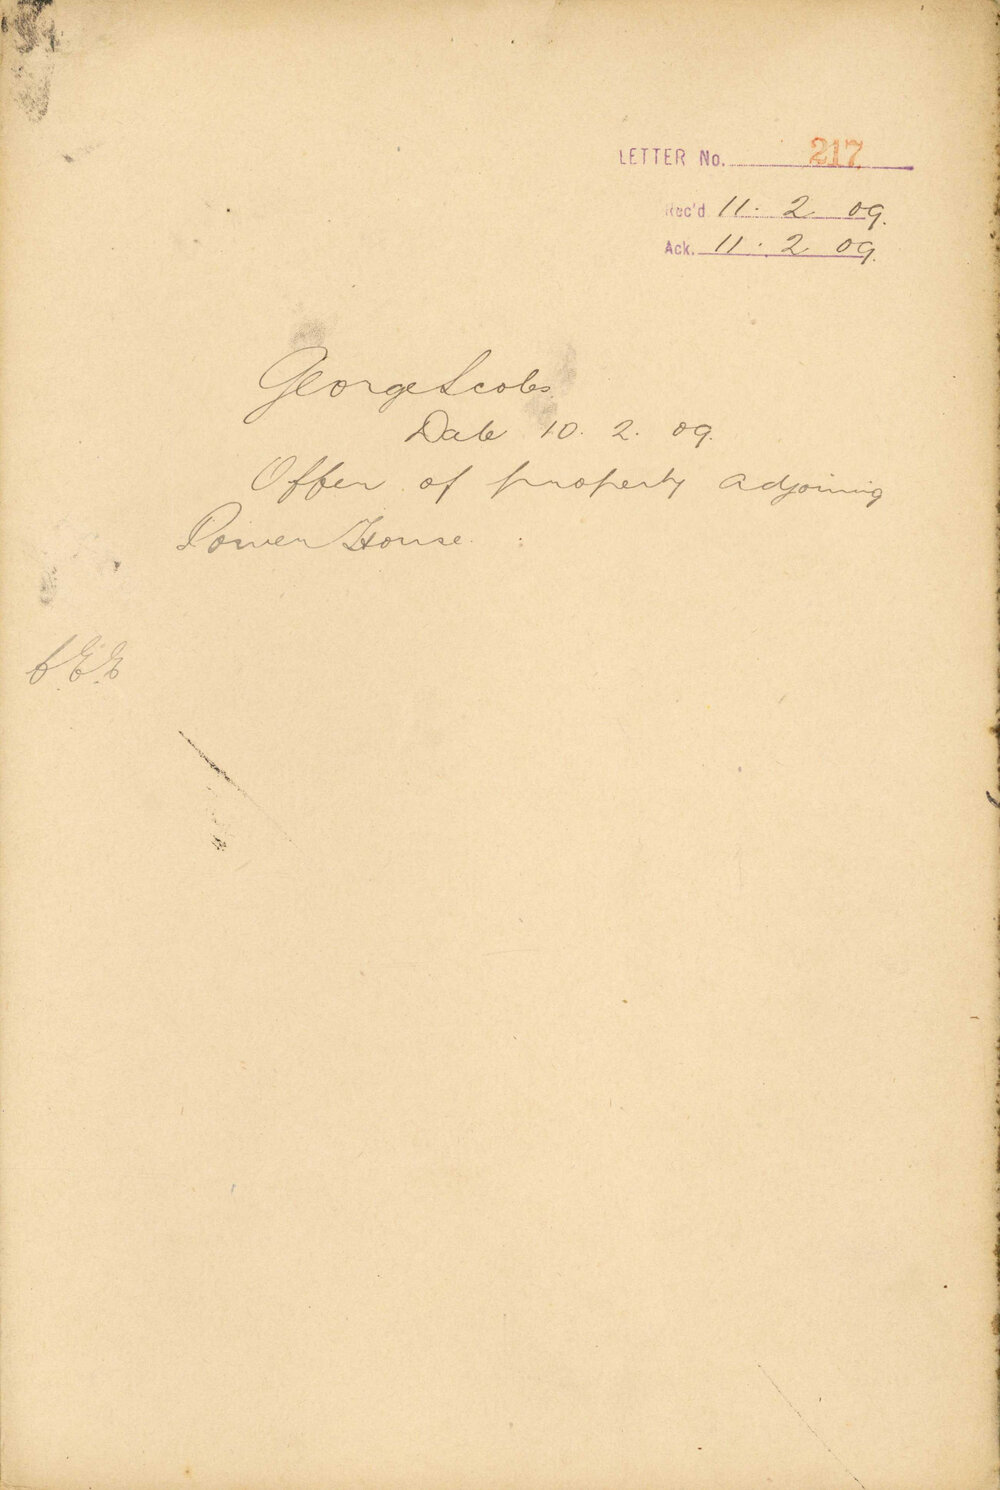 LETTER No. 217
Rec'd 11. 2 09.
Ack. 11. 2 09.
George Scoles
Date 10. 2. 09.
Offer of property adjoining
Power House.